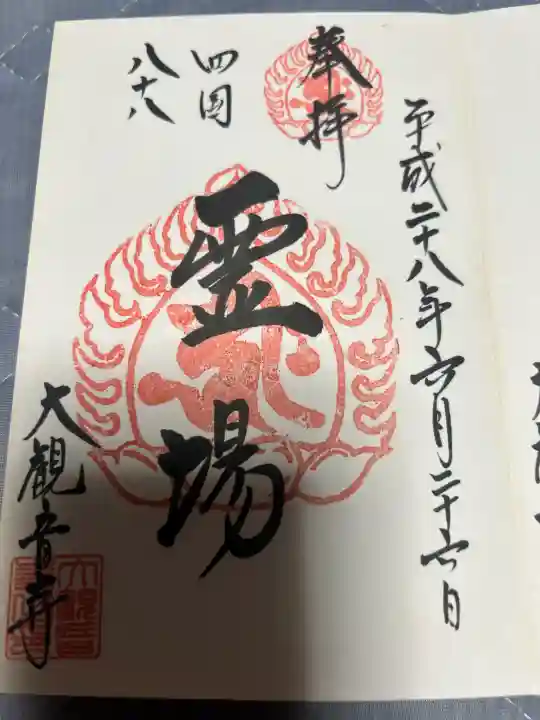 平成二十八年六月二十六日
奉拝
四国
八十八
霊場
大観音寺